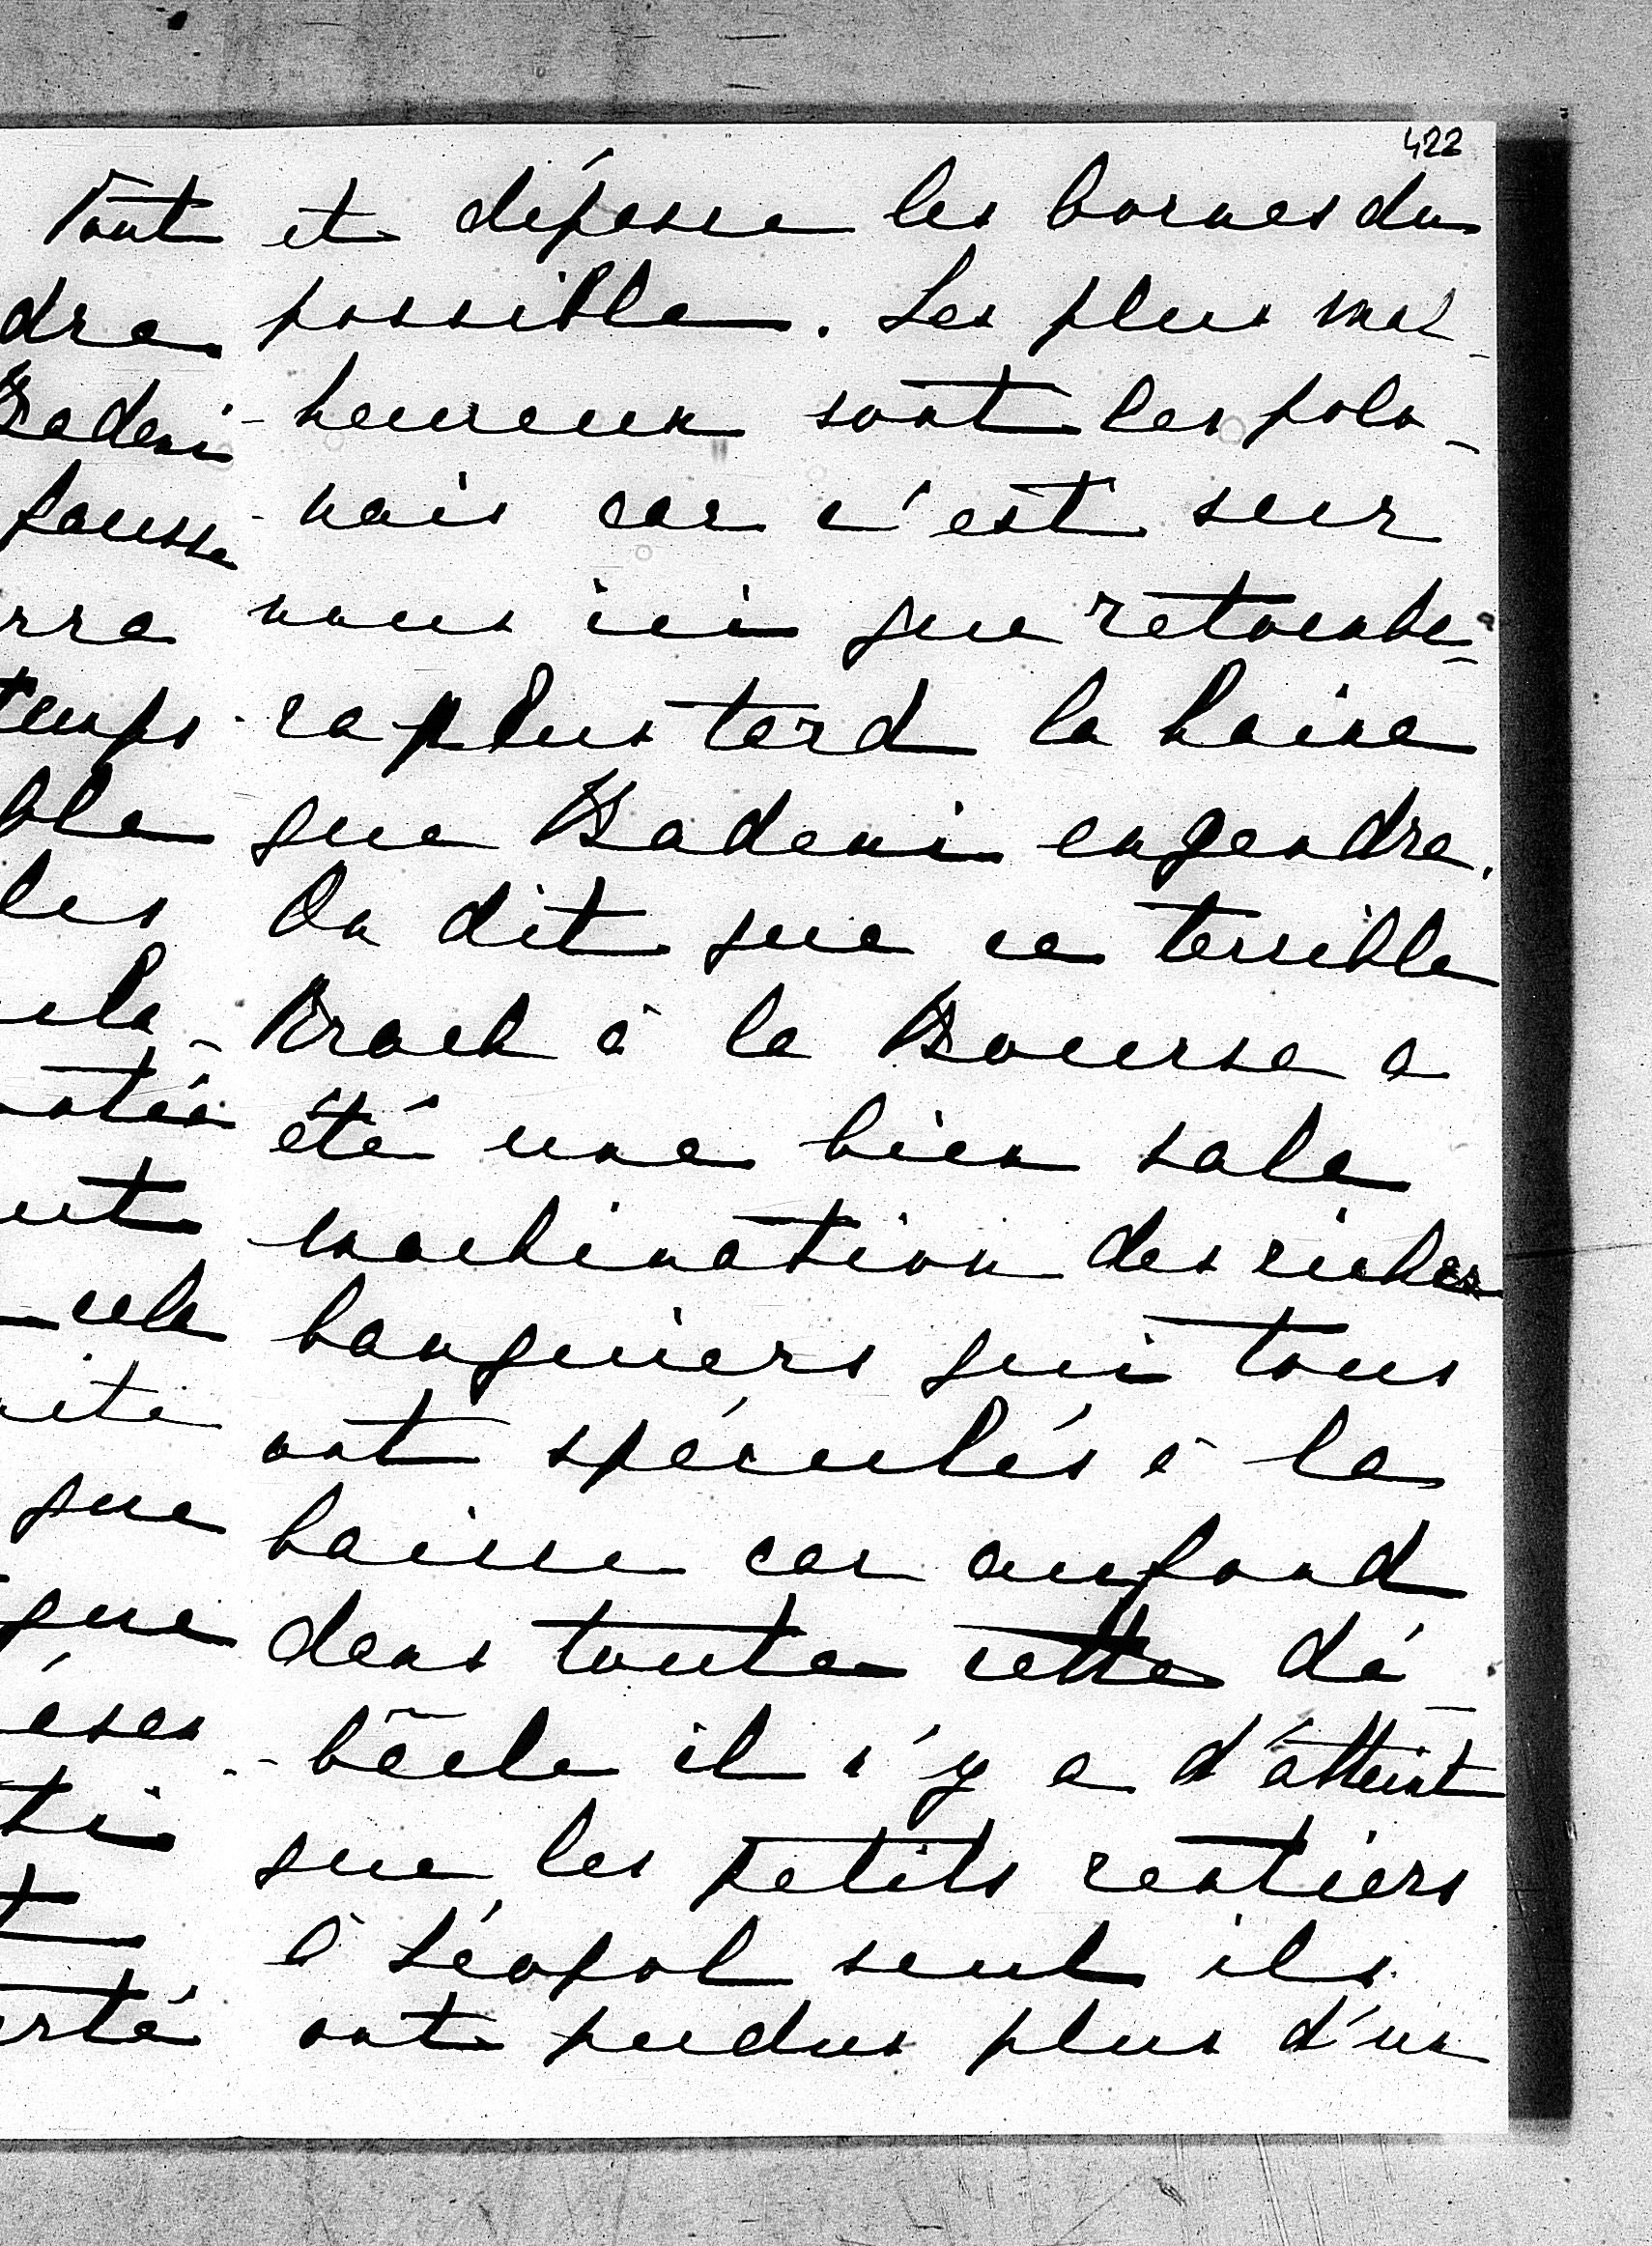 422
et dépasse les bornes du
possible. Les plus mal-
heureux sont les polo-
nais car c'est sur
nous ici que retombe-
ra plus tard la haine
que Badeni engendre.
On dit que ce terrible
Krach à la Bourse a
été une bien sale
machination des riches
banquiers qui tous
ont spéculés à la
baisse car au fond
dans toute cette dé-
bâcle il n'y a d'atteint
que les petits rentiers
à Léopol seul ils
ont perdus plus d'un
tout
dre
Badeni
pousse
rre
temps
ble
les
cela
ité
que
que